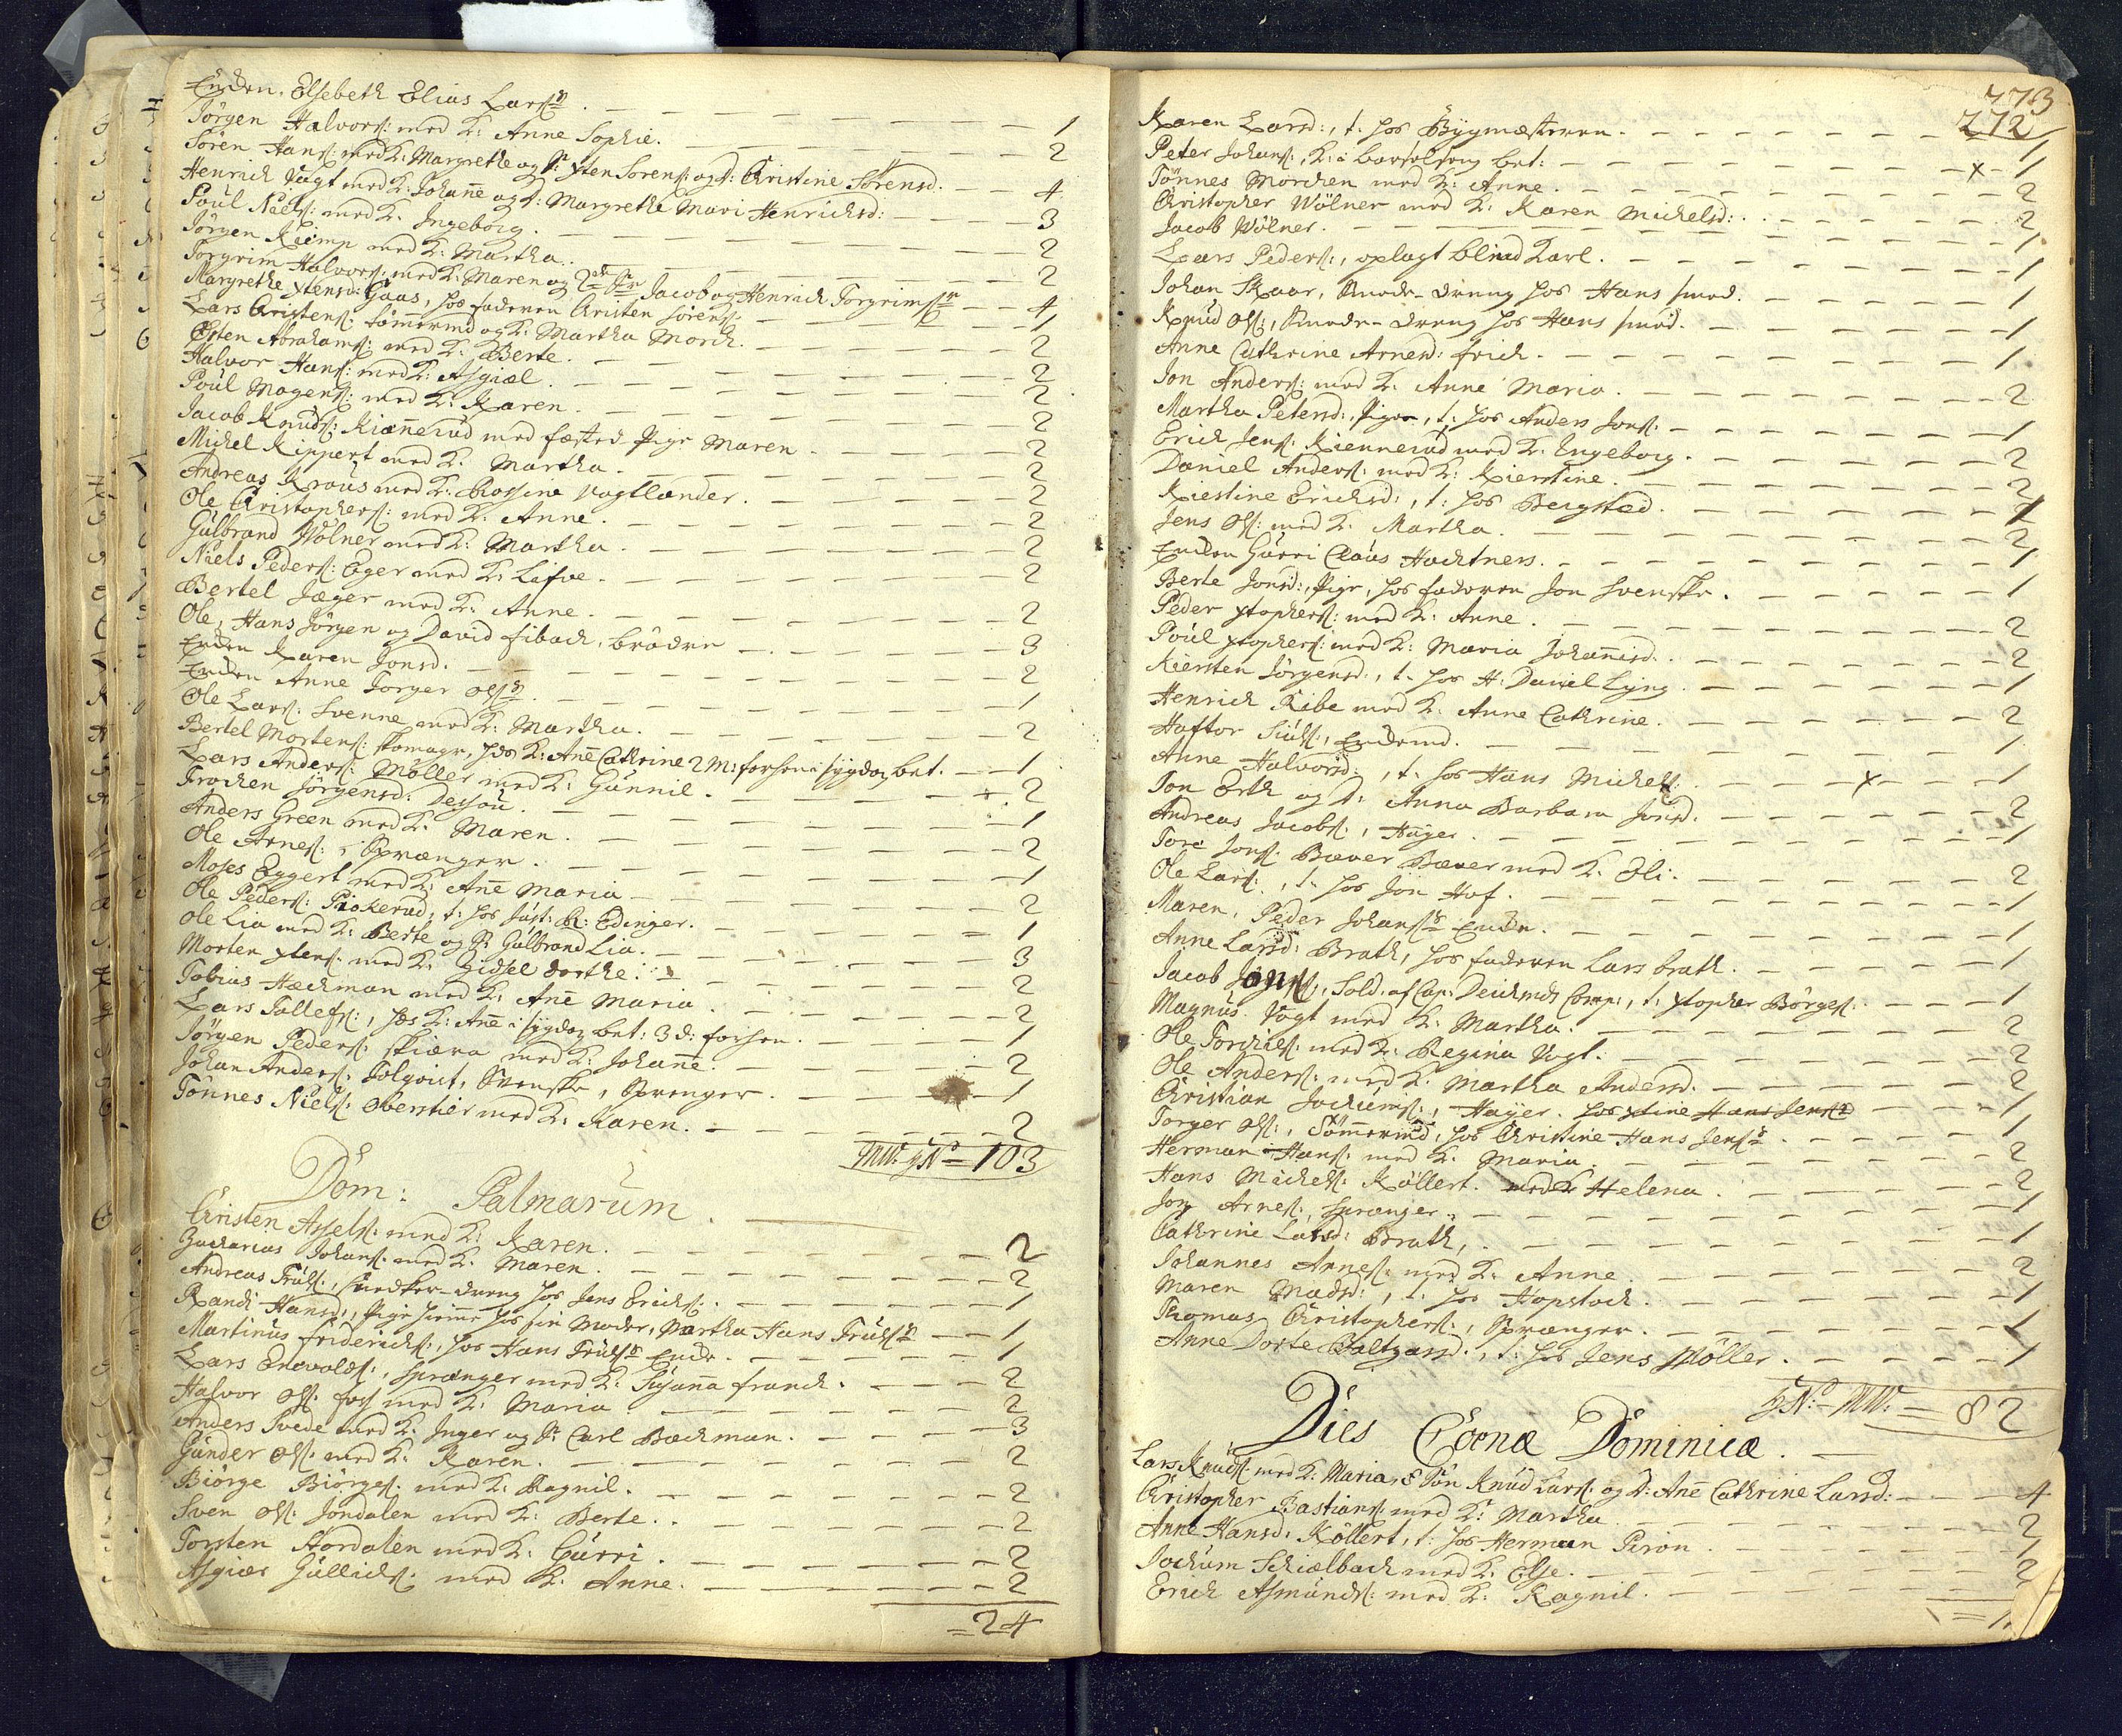 Encken, Elsebeth Elias Larsens - 1
Jörgen Halvors: med K: Anne Sophie. - 2
Sören Hans: med K: Margrethe og S: Xten Sörens: og D: Christine Sörensd. - 4
Henrich Vogt med K: Johañe og D: Margrethe Mari Henrichsd: - 3
Poul Niels: med K: Ingeborg. - 2
Jörgen Kiimp med K: Martha. - 2
Torgrim Halvors: med K: Maren og 2de Sr Jacob og Henrich Torgrimssr - 4
Margrethe Xtensd: Gaas, hos faderen Christen Sörens: - 1
Lars Christens: Tömmermd og K: Martha Morch. - 2
Esten Abrahams: med K: Berte. - 2
Halvor Hans: med K: Asgiæl. - 2
Poul Mogens: med K: Karen. - 2
Jacob Knuds: Kiæñerud med fæsted Pige Maren - 2
Michel Kippert med K: Martha. - 2
Andreas Kraus med K: Rossina Vogtlander. - 2
Ole Christophers: med K: Anne. - 2
Gulbrand Wölner med K: Martha. - 2
Niels Peders: Eger med K: Lisve. - 2
Bertel Jæger med K: Anne. - 2
Ole, Hans Jörgen og David Fibach, brödre - 3
Encken Karen Jonsd. - 2
Encken Anne Torger Olss - 1
Ole Lars: Svenne med K: Martha. - 2
Bertel Mortens: skomager, hvis K: Añe Cathrine 2 M: forhen i sygdom bet. - 1
Lars Anders: Möller med K: Gunnil. - 2
Frochen Jörgensd: Dessau. - 1
Anders Green med K: Maren. - 2
Ole Arnes: , Sprænger. - 1
Moses Eggert med K: Añe Maria - 2
Ole Peders: Piokerud, t: hos Just: R: Edinger. - 1
Ole Lia med K: Berte og S: Gulbrand Lia. - 3
Morten Xtens: med K: Gidsel Dorthe. - 2
Tobias Heckman med K: Añe Maria. - 2
Lars Tollefs: , hvis K: Añe i sygdom bet: 3 d: forhen. - 1
Jörgen Peders: Skiæra med K: Johañe. - 2
Johan Anders: Tolqvist, Svenske, Sprenger. - 1
Tönnes Niels: Oberstier med K: Karen. - 2
103
Dom: Palmarum.
Christen Assels: med K: Karen. - 2
Zacharias Johans: med K: Maren. - 2
Andreas Truls: , snedker-dreng hos Jens Erichs: - 1
Randi Hansd: , Pige hiemme hos sin Moder, Martha Hans Truls - 1
Martinus Friderichs: , hos Hans Truls Encke. - 1
Lars Enevolds: , sprænger med K: Susaña Franck. - 2
Halvor Ols: Foss med K: Maria. - 2
Anders Svede med K: Inger og S: Carl Bæckman. - 3
Gunder Ols: med K: Karen. - 2
Biörge Biörges: med K: Ragnil. - 2
Sven Ols: Jondalen med K: Berte. - 2
Torsten Nordalen med K: Gurri. - 2
Asgier Gullichs: med K: Anne. - 2
= 24
273
272
Karen Larsd: , t: hos Bÿgmesteren. - 1
Peter Johans: , K: i barselseng bet: - x - 1
Tönnes Morchen med K: Anne. - 2
Christopher Wölner med K: Karen Michelsd: - 2
Jacob Wölner. - 1
Lars Peders: , oplagt blind Karl. - 1
Johan Skaar, Smede-dreng hos Hans smed. - 1
Knud Ols: , Smede-dreng hos Hans smed. - 1
Anne Cathrine Arnesd: Frich. - 1
Jon Anders: med K: Anne Maria. - 2
Martha Petersd: , Pige, t: hos Anders Jons: - 1
Erich Jens: Kiennerud med K: Engeborg. - 2
Daniel Anders: med K: Kierstine. - 2
Kiestine Erichsd: , t: hos Bergsted. - 1
Jens Ols: med K: Martha. - 2
Encken Gurri Claus Hachtners. - 1
Berte Jonsd: , Pige, hos faderen Jon Svenske. - 1
Peder Xtophers: med K: Anne. - 2
Poul Xtophers: med K: Maria Johañisd. - 2
Kiersten Jörgensd: , t. hos H: Daniel Lyng. - 1
Henrich Ribe med K: Anne Cathrine. - 2
Haftor Siuls: , Enckemd. - 1
Anne Halvorsd: , t. hos Hans Michels: - x - 1
Jon Erth og D: Anna Barbara Jonsd. - 2
Andreas Jacobs: , Hayer. - 1
Tore Jons: Bæver Bæver med K: Oli. - 2
Ole Lars: , t. hos Jon Hof. - 1
Maren, Peder Johanss Encke. - 1
Anne Larsd: Brath, hos faderen Lars Brath. - 1
Jacob Jons: , Sold: af Cap: Deichmds Comp: , t. Xtopher Börges: - 1
Magnus Vogt med K: Martha. - 2
Ole Torchils: med K: Regina Vogt. - 2
Ole Anders: med K: Martha Andersd. - 2
Christian Jochums: , Hayer. hos Xtine Hans Jens - 1
Torger Ols: , Tömmermd, hos Christine Hans Jens - 1
Herman Hans: med K: Maria. - 2
Hans Michels: Köllert. med K: Helena. - 2
Jon Arnes: , sprænger. - 1
Cathrine Larsd: Brath, - 1
Johannes Arnes: med K: Anne. - 2
Maren Madsd: , t. hos Hopstock. - 1
Thomas Christophers: , Sprænger. - 1
Anne Dorte Baltzarsd: , t: hos Jens Möller. - 1
82
Dies Coenæ Dominicæ.
Lars Knuds: med K: Maria, S Sön Knud Lars: og D: Añe Cathrine Larsd: - 4
Christopher Bastians: med K: Martha - 2
Anne Hansd: Köllert, t: hos Herman Piron - 1
Jochum Schiælbach med K: Else. - 2
Erich Asmunds: med K: Ragnil.